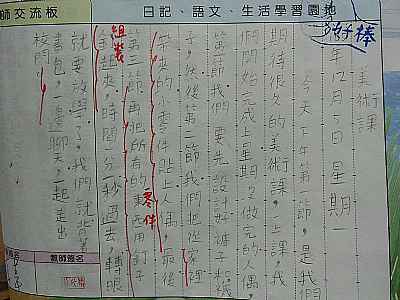 師交流板
日記、語文、生活學習園地
好棒
美術課
年12月5日星期一
今天下午第一節，是我們
期待很久的美術課，一上課，我
們開始完成上星期做完的人偶，
第一節我們要先設計好褲子和襪
子，然後第二節我們把從家裡
帶來的小零件貼上人偶，最後
零件
第三節再把所有的東西用釘子
組裝
起來，時間一分一秒過去，轉眼
就要放學了，我們就背著
書包，一邊聊天，一起走出
校門。
教師簽名